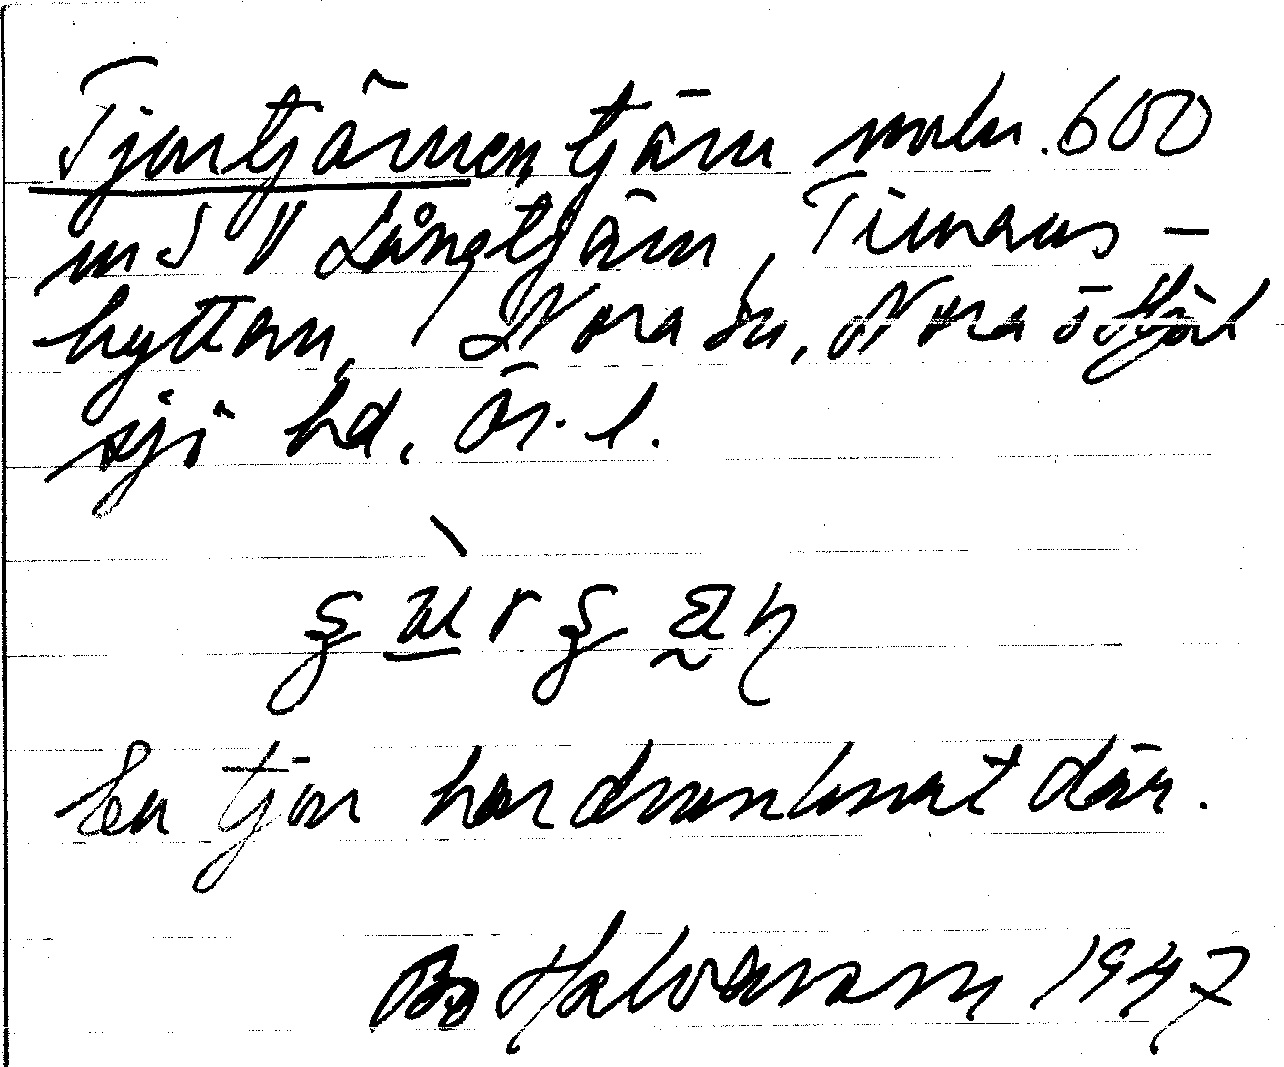 Tjurtjärnen, tjärn omkr. 600
m S V Långtjärn, Timans-
hyttan, Nora sn, Nora o Hjul
sjö hd, Ör. l.
En tjur har drunknat där.
Bo 1947